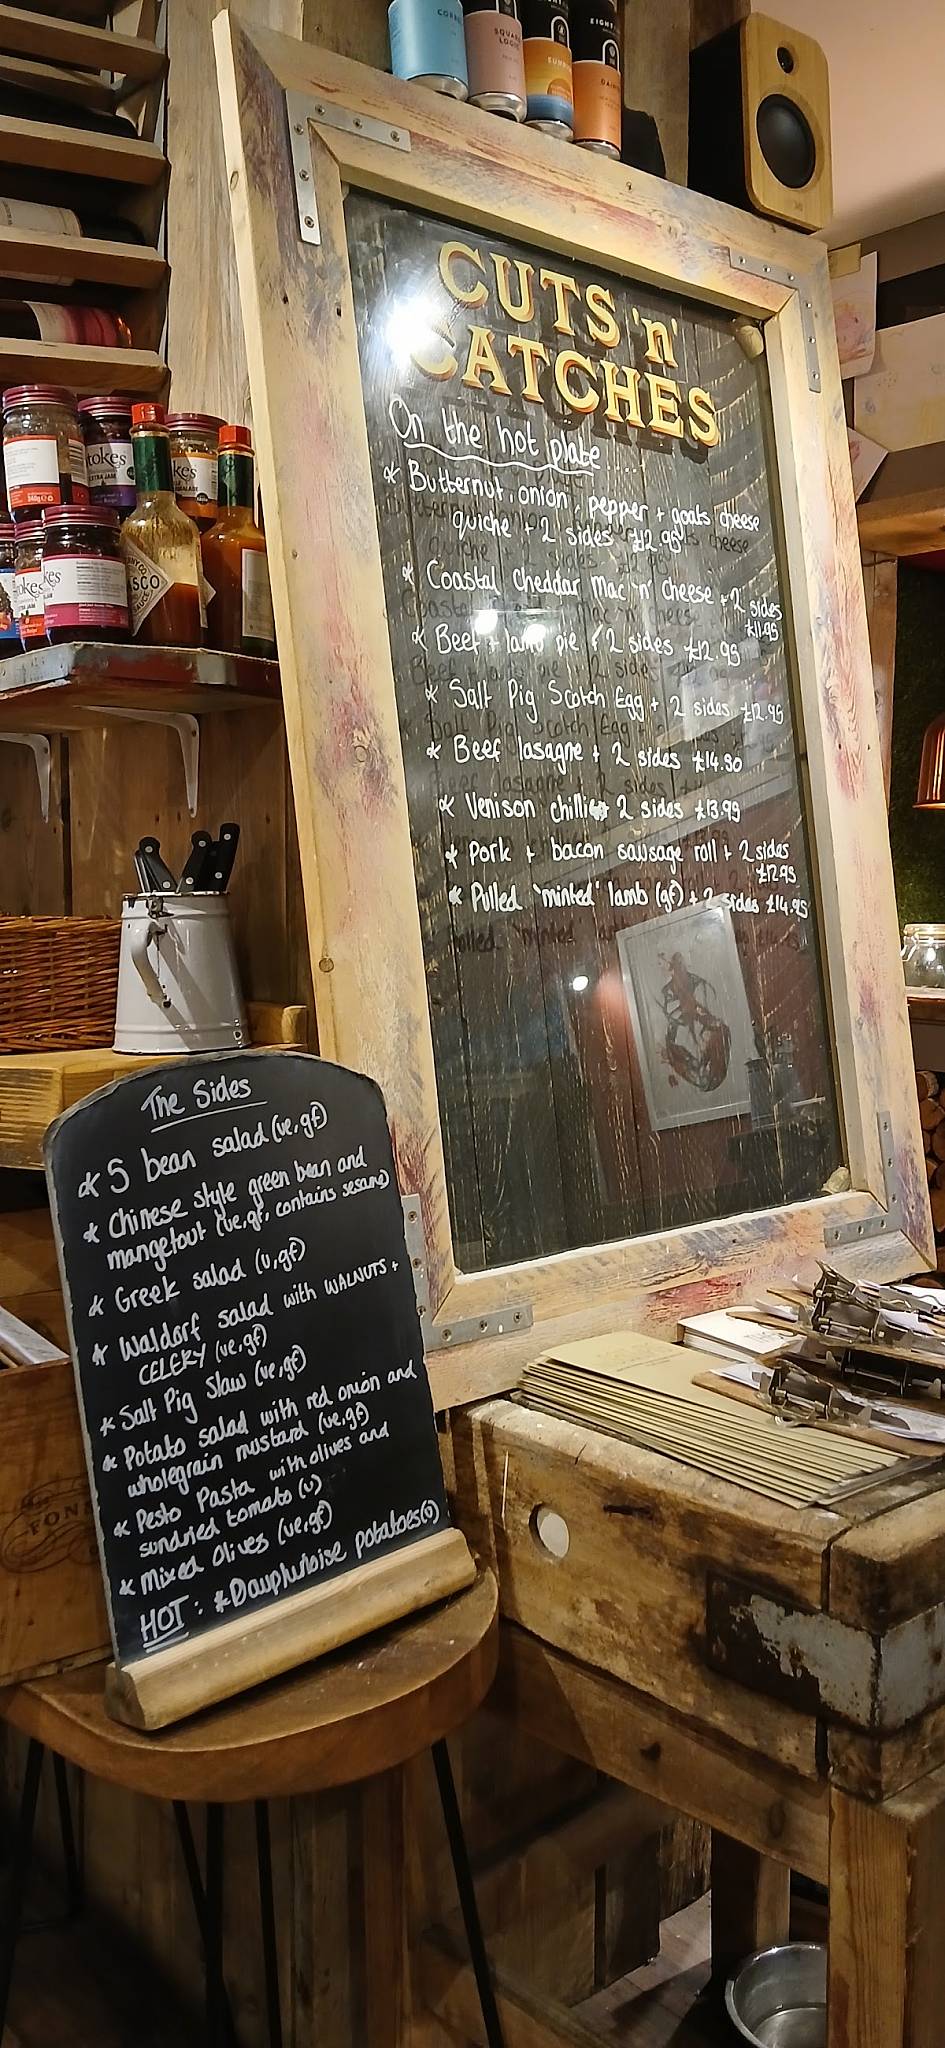 CUTS 'n'
CATCHES
On the hot plate.....
* Butternut, onion, pepper + goats cheese
quiche + 2 sides £12.95
* Coastal Cheddar Mac 'n' cheese + 2 sides
£11.95
* Beef + lamb pie + 2 sides £12.95
* Salt Pig Scotch Egg + 2 sides £12.95
* Beef lasagne + 2 sides £14.50
* Venison chilli + 2 sides £13.95
* Pork + bacon sausage roll + 2 sides
£12.95
* Pulled 'minted' lamb (gf) + 2 sides £14.95
The Sides
* 5 bean salad (ve, gf)
* Chinese style green bean and
mangetout (ve, gf, contains sesame)
* Greek salad (v, gf)
* Waldorf salad with WALNUTS +
CELERY (ve, gf)
* Salt Pig Slaw (ve, gf)
* Potato salad with red onion and
wholegrain mustard (ve, gf)
* Pesto Pasta with olives and
sundried tomato (v)
* Mixed Olives (ve, gf)
HOT : * Dauphinoise potatoes (v)
SQUARE
LOGIC
Stokes